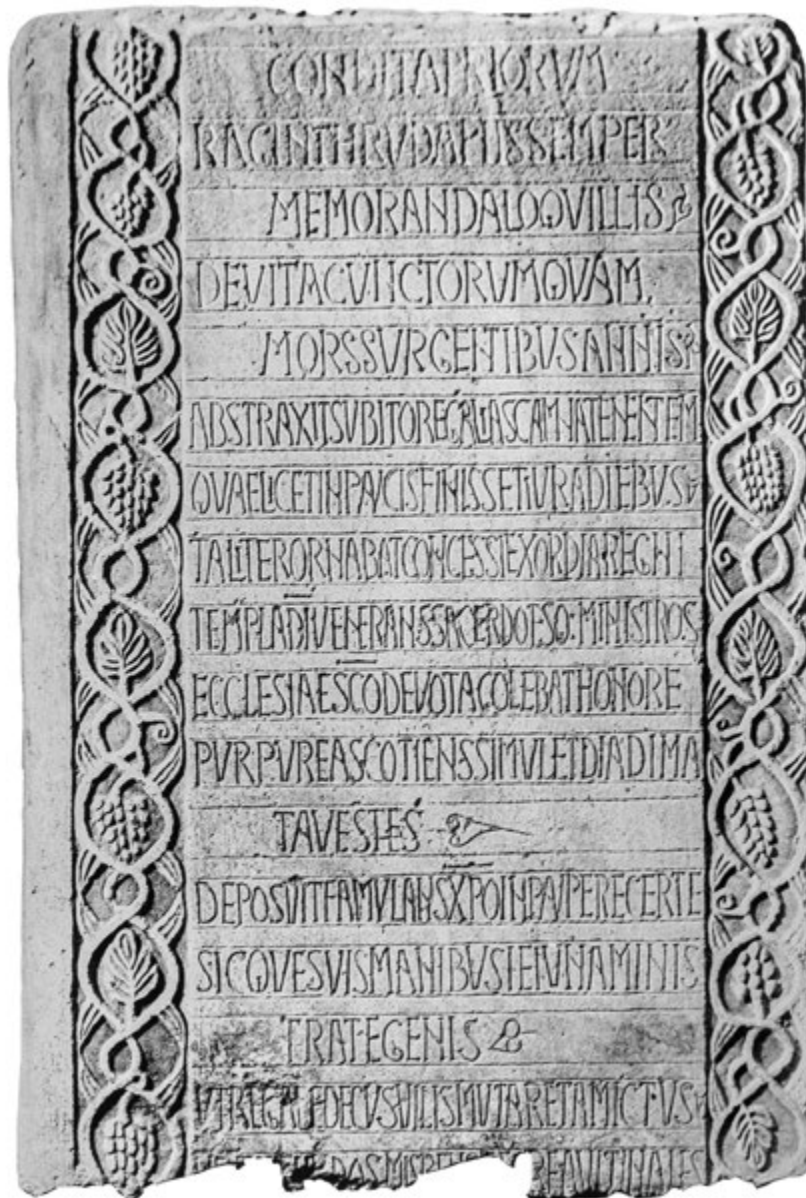 CONDITAPRIORVM
RAGINTHRVDAPIISSEMPER
MEMORANDALOQVILLIS
DEVITACVNCTORVMQVAM
MORSSVRGENTIBVSANNIS
ABSTRAXITSVBITOREGALIASCAMNATENENTEM
QVAELICETINPAVCISFINISSETIVRADIEBVS
TALITERORNABATCONCESSIEXORDIAREGNI
TEMPLADIVENERANSSACERDOTESQ·MINISTROS
ECCLESIAESCODEVOTACOLEBATHONORE
PVRPVREASCOTIENSSIMVLETDIADIMA
TAVESTES
DEPOSVITFAMVLANSXPOINPAVPERECERTE
SICQVESVISMANIBVSIEIVNAMINIS
TRATEGENIS
VTREGALEDECVSVILISMVTARETAMICTVS